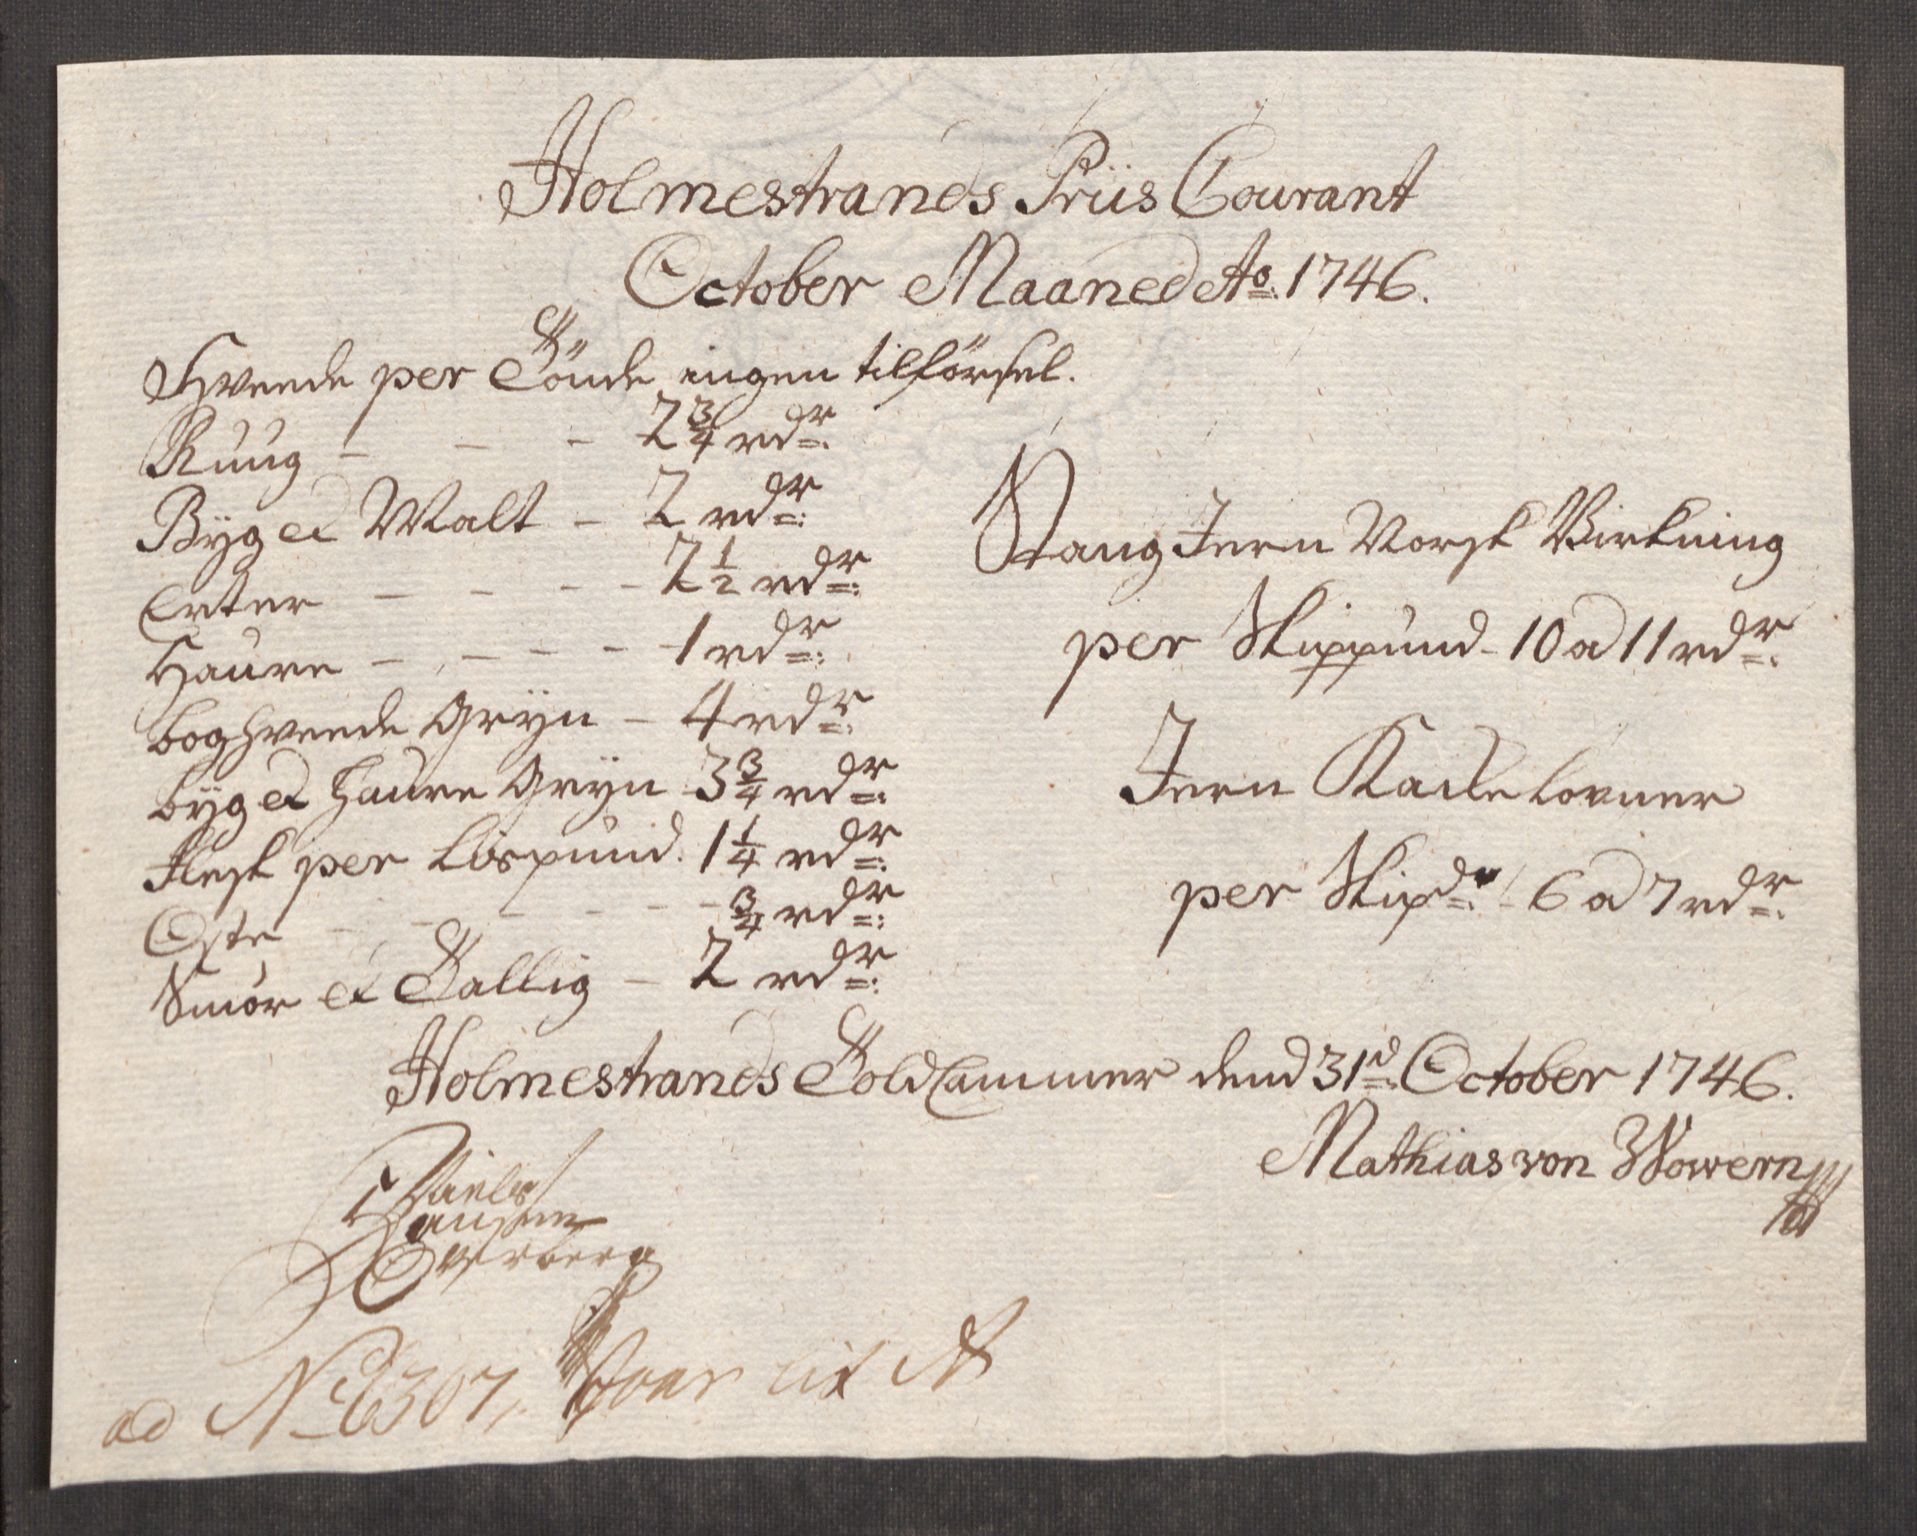 Holmestrands Priis Courant
October Maaned Ao. 1746.
Hveede per Tönde ingen tilförsel.
Ruug - - - 2 3/4 rdr.
Byg et Malt - 2 rdr.
Erter - - - - 2 1/2 rdr.
Haure - - - - 1 rdr.
boghveede Gryn - 4 rdr.
byg et haure Gryn 3 3/4 rdr.
Flesk per Lispund. 1 1/4 rdr.
Oste - - - - - 3/4 rdr.
Smör et Tallig - 2 rdr.
Stang Jern Norsk Virkning
per Skippund - 10 a 11 rdr.
Jern Kackelovner
per Skipd. - 6 a 7 rdr.
Holmestrands Told Cammer dend 31d. October 1746.
Mathias von Wowern
Niels
Hansen
Overberg
ad No 6307, lit A